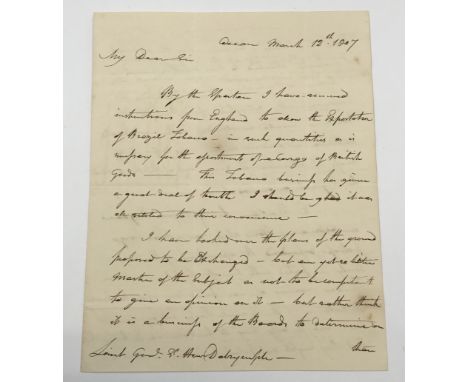 March 12th 1807
My Dear Sir
By the Spartan I have received
instructions from England to allow the Exportation
of Brazil Tobacco - in such quantities as is
necessary for the assortments of a Cargo of British
Goods - This Tobacco business has given
a great deal of trouble I should be glad it was
to their convenience -
I have looked over the plans of the ground
proposed to be Exchanged - but am yet so little
Master of the Subject as not to be competent
to give an opinion on it - but rather think
it is a business of the Boards to determine on
Lieut Genl. Sr. Hew Dalrymple -
than